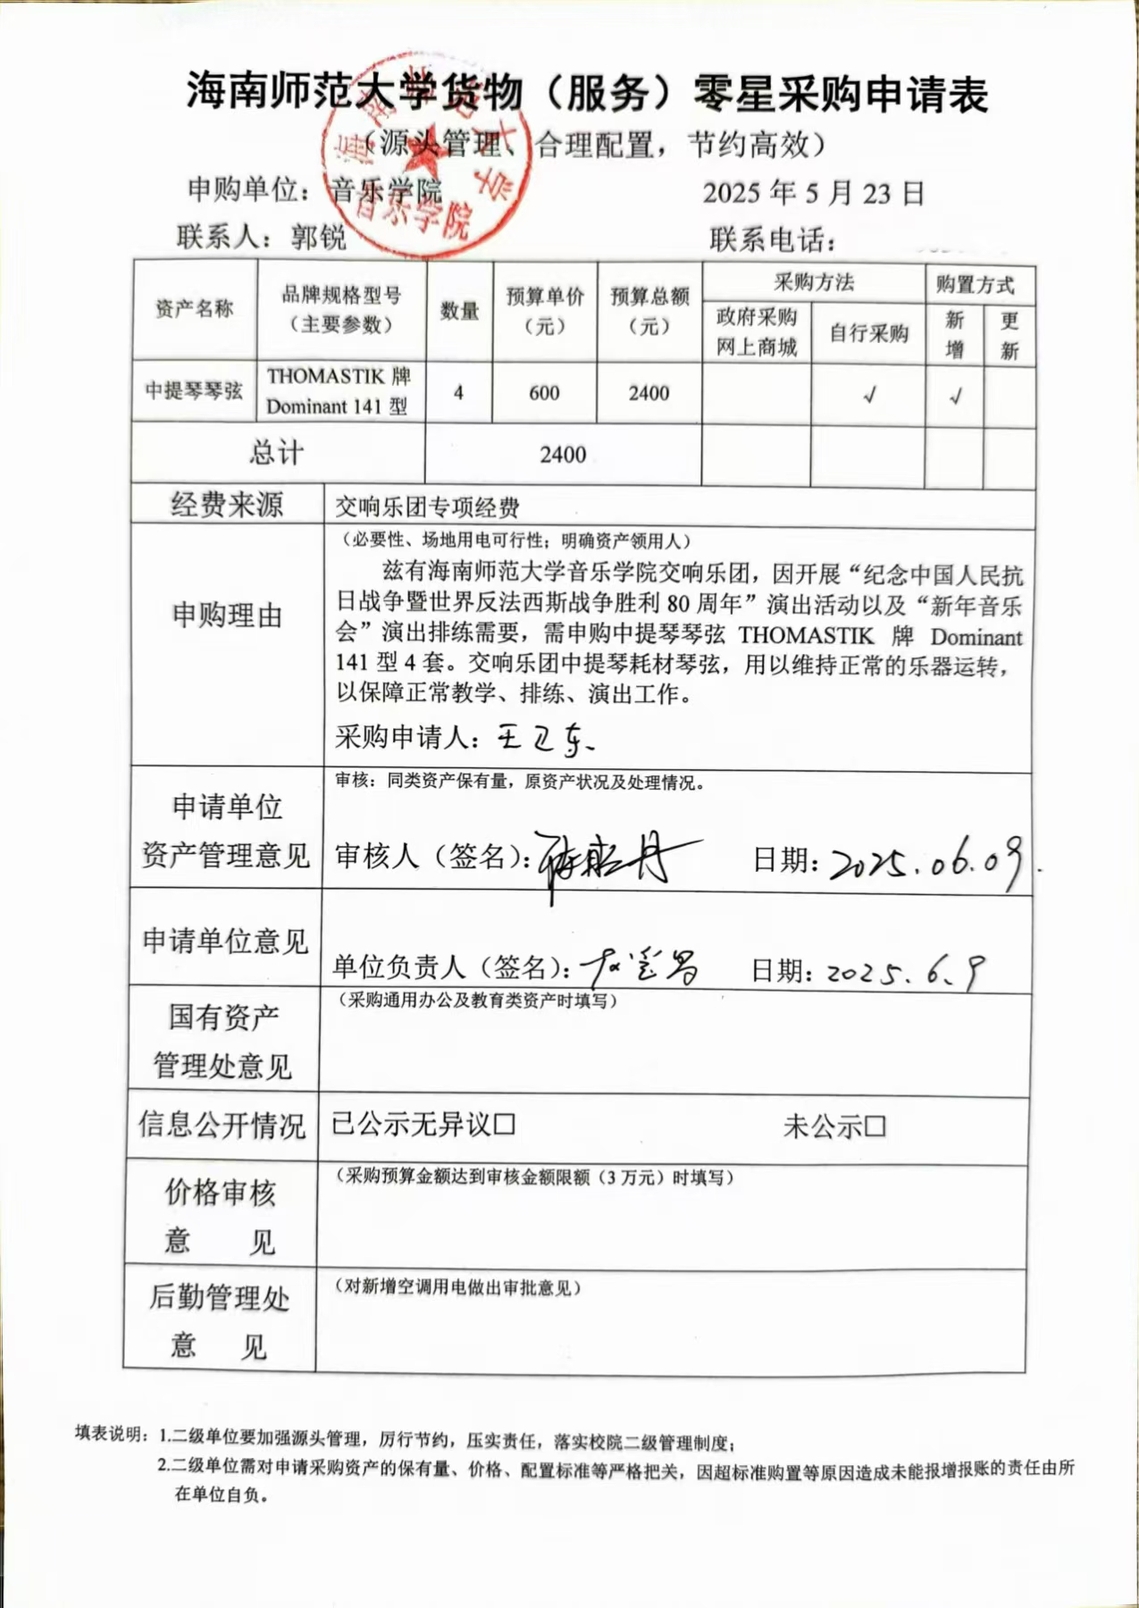 海南师范大学货物（服务）零星采购申请表
（源头管理、合理配置，节约高效）
海南师范大学
音乐学院
申购单位：音乐学院 2025 年 5 月 23 日
联系人：郭锐 联系电话：
资产名称 品牌规格型号（主要参数） 数量 预算单价（元） 预算总额（元） 采购方法 购置方式
政府采购网上商城 自行采购 新增 更新
中提琴琴弦 THOMASTIK 牌 Dominant 141 型 4 600 2400 √ √
总计 2400
经费来源 交响乐团专项经费
申购理由
（必要性、场地用电可行性；明确资产领用人）
兹有海南师范大学音乐学院交响乐团，因开展“纪念中国人民抗
日战争暨世界反法西斯战争胜利 80 周年”演出活动以及“新年音乐
会”演出排练需要，需申购中提琴琴弦 THOMASTIK 牌 Dominant
141 型 4 套。交响乐团中提琴耗材琴弦，用以维持正常的乐器运转，
以保障正常教学、排练、演出工作。
采购申请人：王卫东
申请单位
资产管理意见
审核：同类资产保有量，原资产状况及处理情况。
审核人（签名）： 日期：2025.06.09.
申请单位意见
单位负责人（签名）： 日期：2025.6.9
国有资产
管理处意见
（采购通用办公及教育类资产时填写）
信息公开情况 已公示无异议□ 未公示□
价格审核
意 见
（采购预算金额达到审核金额限额（3 万元）时填写）
后勤管理处
意 见
（对新增空调用电做出审批意见）
填表说明：1.二级单位要加强源头管理，厉行节约，压实责任，落实校院二级管理制度；
2.二级单位需对申请采购资产的保有量、价格、配置标准等严格把关，因超标准购置等原因造成未能报增报账的责任由所
在单位自负。